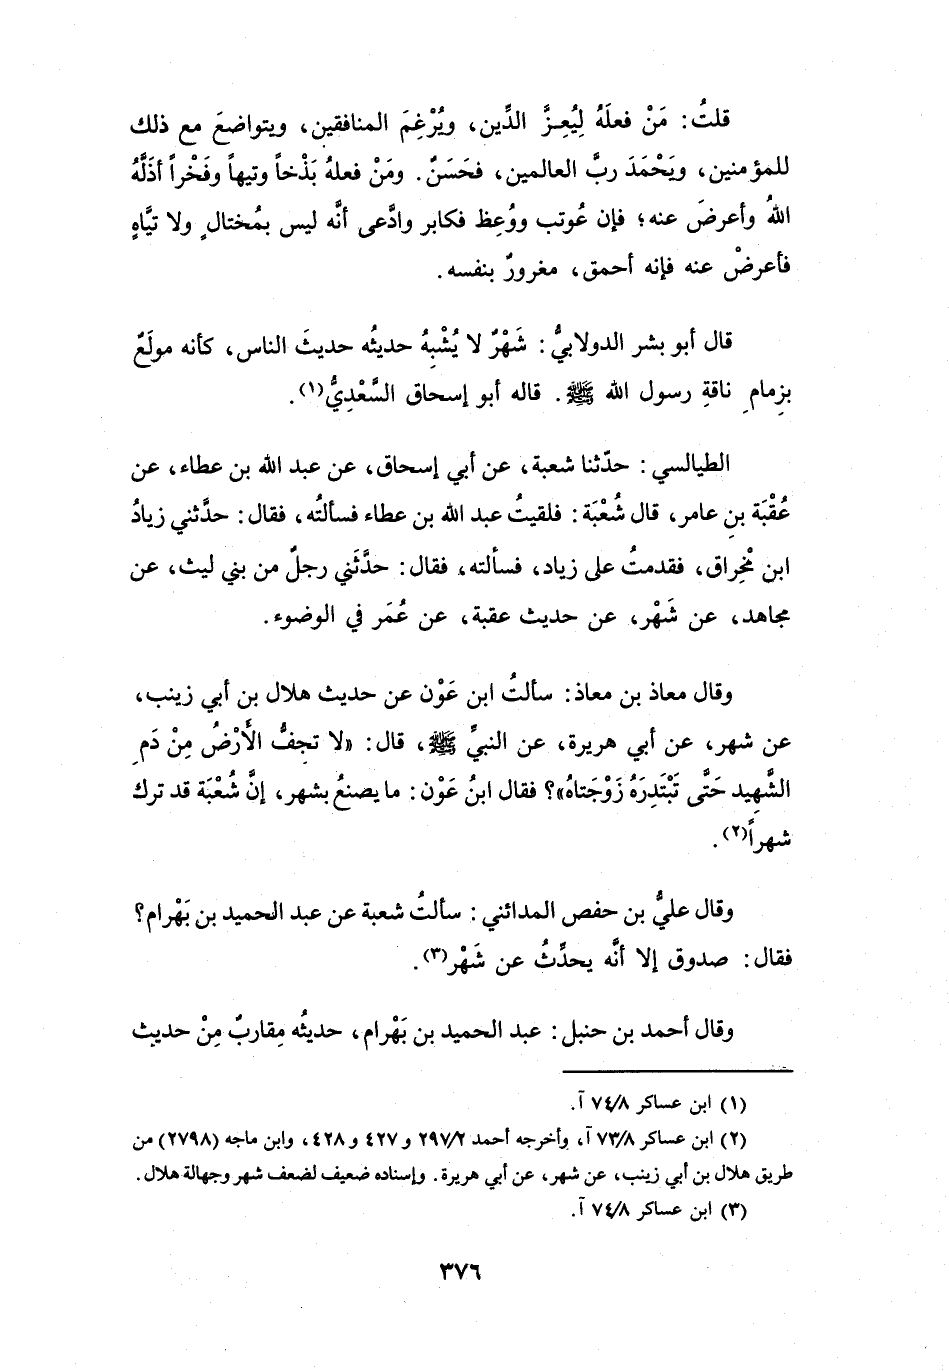 قلتُ: مَنْ فعلَهُ لِيُعِزَّ الدِّين، ويُرْغِمَ المنافقين، ويتواضعَ مع ذلك
للمؤمنين، ويَحْمَدَ ربَّ العالمين، فحَسَنٌ. ومَنْ فعلهُ بَذْخاً وتيهاً وفَخْراً أذَلَّهُ
اللهُ وأعرضَ عنه؛ فإن عُوتب ووُعِظ فكابر وادَّعى أنَّه ليس بمُختالٍ ولا تيَّاهٍ
فأعرضْ عنه فإنه أحمق، مغرورٌ بنفسه.
قال أبو بشر الدولابيُّ: شَهْرٌ لا يُشْبِهُ حديثُه حديثَ الناس، كأنه مولَعٌ
بزِمامِ ناقةِ رسول الله ﷺ. قاله أبو إسحاق السَّعْدِيُّ(١).
الطيالسي: حدّثنا شعبة، عن أبي إسحاق، عن عبد الله بن عطاء، عن
عُقْبَة بنِ عامر، قال شُعْبَة: فلقيتُ عبد الله بن عطاء فسألتُه، فقال: حدَّثني زيادُ
ابن مْخِراق، فقدمتُ على زياد، فسألته، فقال: حدَّثَني رجلٌ من بني ليث، عن
مجاهد، عن شَهْر، عن حديث عقبة، عن عُمَر في الوضوء.
وقال معاذ بن معاذ: سألتُ ابن عَوْن عن حديث هلال بن أبي زينب،
عن شهر، عن أبي هريرة، عن النبيِّ ﷺ، قال: «لا تجِفُّ الأَرْضُ مِنْ دَمِ
الشَّهِيد حَتَّى تَبْتَدِرَهُ زَوْجَتاهُ»؟ فقال ابنُ عَوْن: ما يصنعُ بشهر، إنَّ شُعْبَة قد ترك
شهراً(٢).
وقال عليُّ بن حفص المدائني: سألتُ شعبة عن عبد الحميد بن بَهْرام؟
فقال: صدوق إلا أنَّه يحدِّثُ عن شَهْر(٣).
وقال أحمد بن حنبل: عبد الحميد بن بَهْرام، حديثُه مقاربٌ مِنْ حديث
(١) ابن عساكر ٧٤/٨ آ.
(٢) ابن عساكر ٧٣/٨ آ، وأخرجه أحمد ٢٩٧/٢ و ٤٢٧ و ٤٢٨، وابن ماجه (٢٧٩٨) من
طريق هلال بن أبي زينب، عن شهر، عن أبي هريرة. وإسناده ضعيف لضعف شهر وجهالة هلال.
(٣) ابن عساكر ٧٤/٨ آ.
٣٧٦